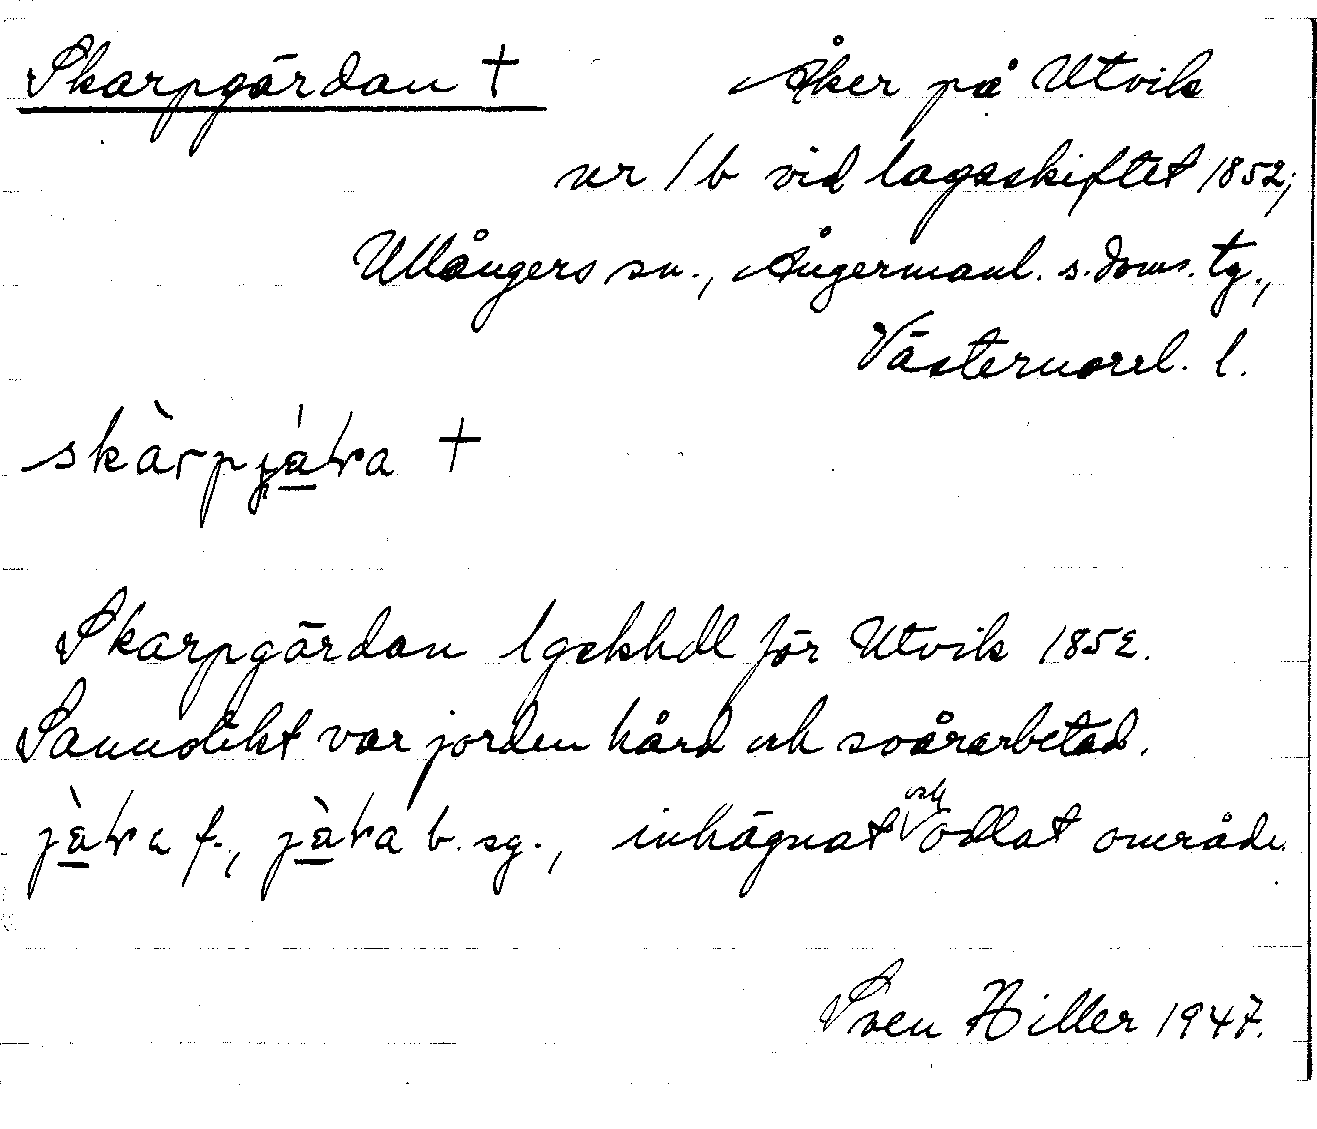 Skarpgärdan † Åker på Utvik
nr 1b vid lagaskiftet 1852;
Ullångers sn., Ångermanl. s. doms. tg.,
Västernorrl. l.
†
Skarpgärdan lgskhdl för Utvik 1852.
Sannolikt var jorden hård och svårarbetad.
f., b. sg., inhägnat odlat område
Sven Hiller 1947.